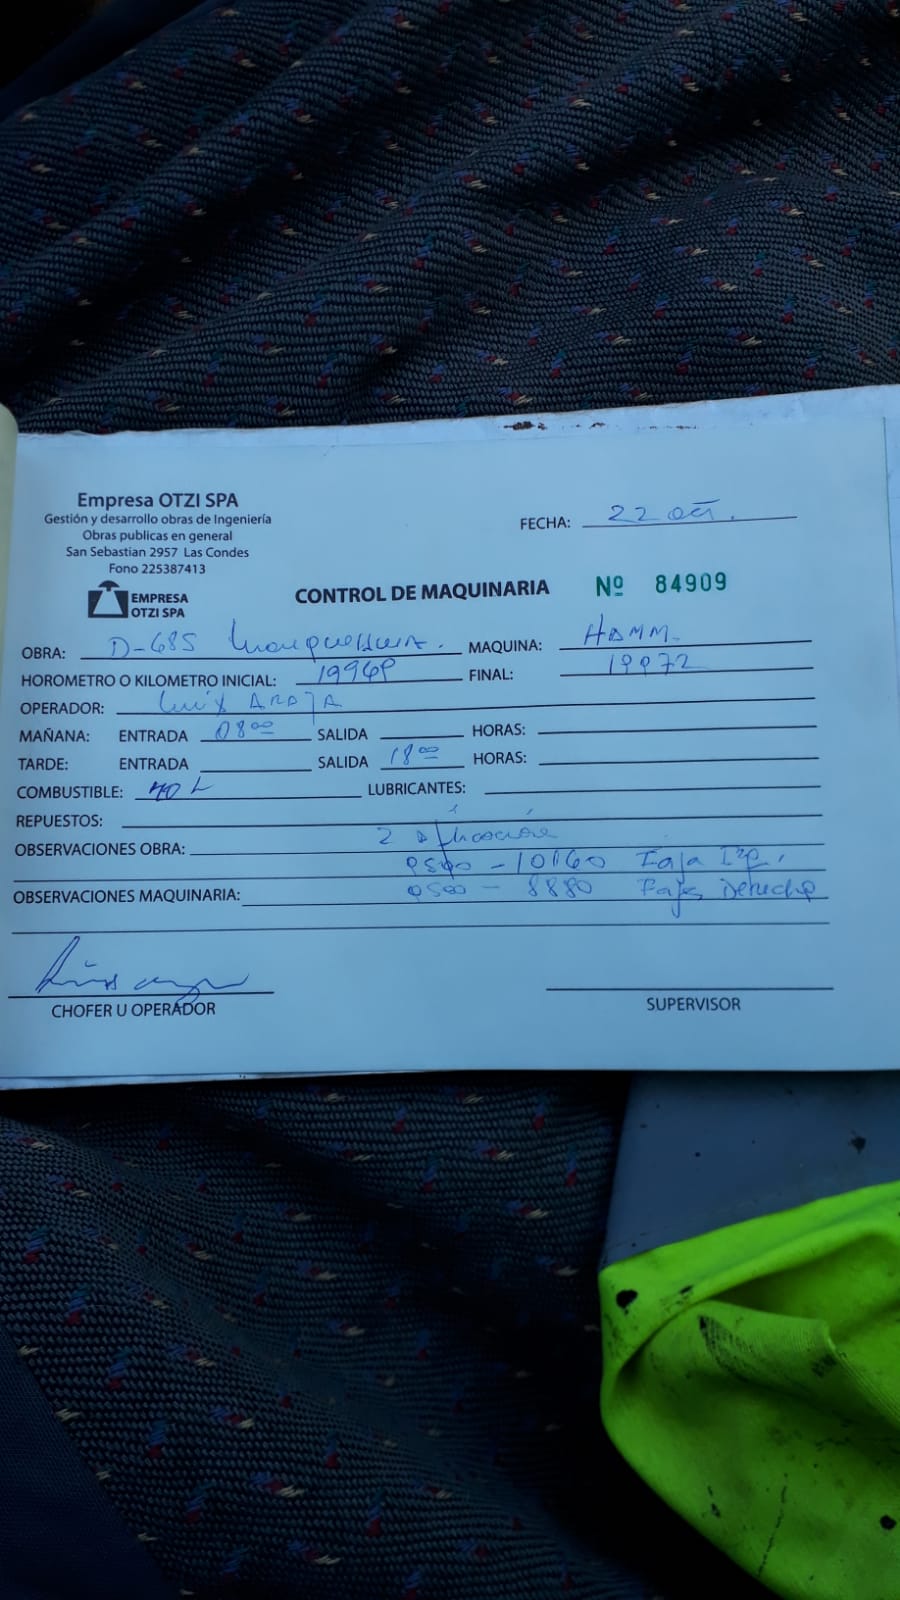 Empresa OTZI SPA
Gestión y desarrollo obras de Ingeniería
Obras publicas en general
San Sebastian 2957 Las Condes
Fono 225387413
EMPRESA
OTZI SPA
FECHA: 22 oct.
CONTROL DE MAQUINARIA Nº 84909
OBRA: D-685 MAQUINA: HAMM.
HOROMETRO O KILOMETRO INICIAL: FINAL: 19972
OPERADOR: Luis
MAÑANA: ENTRADA 08⁰⁰ SALIDA HORAS:
TARDE: ENTRADA SALIDA 18⁰⁰ HORAS:
COMBUSTIBLE: 40 L LUBRICANTES:
REPUESTOS:
OBSERVACIONES OBRA: 2
- 10160 Faja Izq.
OBSERVACIONES MAQUINARIA: 9500 - 8880 Faja Derecha
CHOFER U OPERADOR
SUPERVISOR